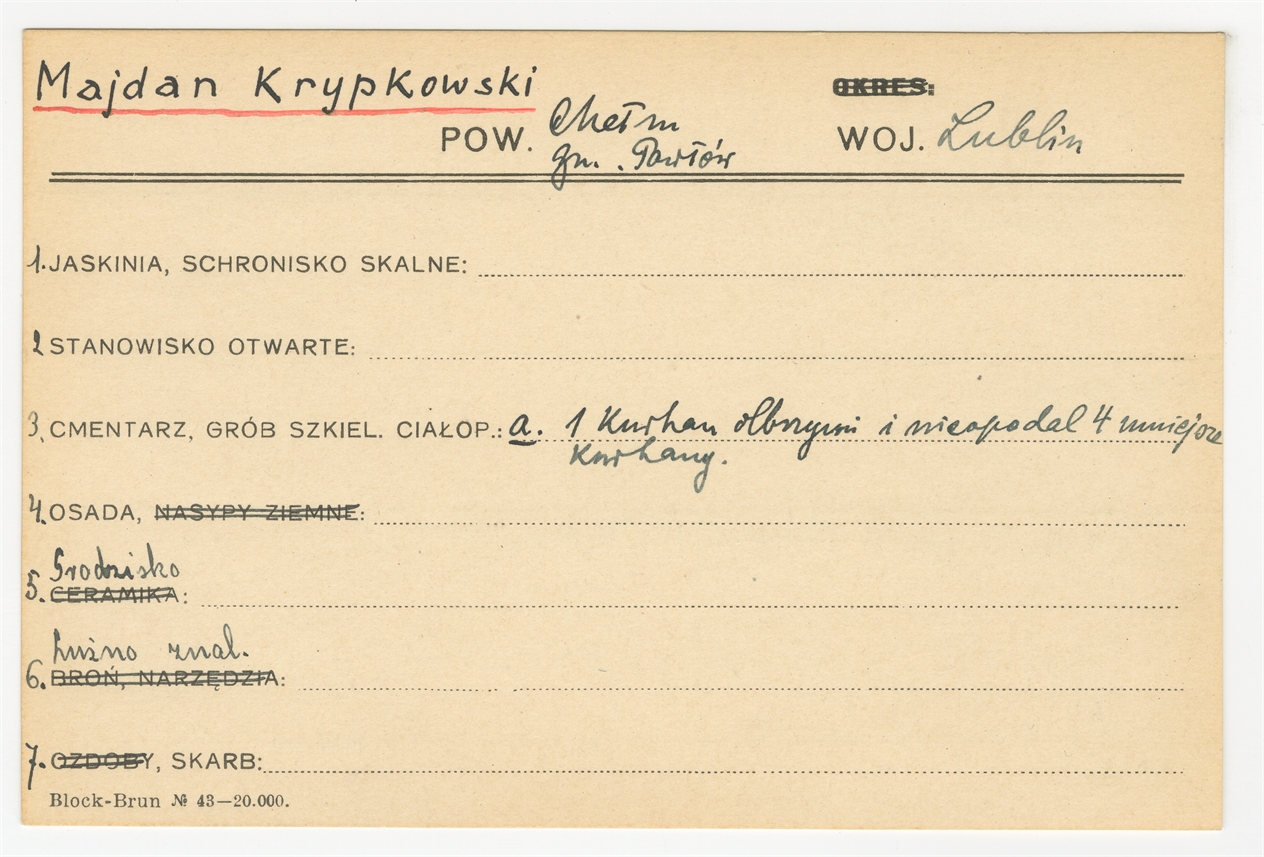 Majdan Krypkowski
OKRES:
POW. Chełm WOJ. Lublin
gm. Pawłów
1. JASKINIA, SCHRONISKO SKALNE:
2 STANOWISKO OTWARTE:
3, CMENTARZ, GRÓB SZKIEL. CIAŁOP.: a. 1 Kurhan olbrzymi i nieopodal 4 mniejsze
kurhany.
4. OSADA, NASYPY ZIEMNE:
Grodzisko
5. CERAMIKA:
Luźno znal.
6. BROŃ, NARZĘDZIA:
7. OZDOBY, SKARB:
Block-Brun № 43—20.000.